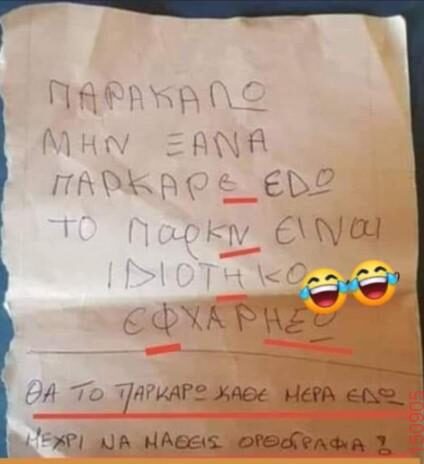 ΠΑΡΑΚΑΠΩ
ΜΗΝ ΞΑΝΑ
ΠΑΡΚΑΡΕ ΕΔΩ
ΤΟ ΠαρΚΝ ΕΙΝαι
ΙΔΙΟΤΗΚΟ
ΕΦΧΑΡΗΣΟ
ΘΑ ΤΟ ΠΑΡΚΑΡΩ ΚΑΘΕ ΜΕΡΑ ΕΔΩ
ΜΕΧΡΙ ΝΑ ΜΑΘΕΙΣ ΟΡΘΟΓΡΑΦΙΑ!